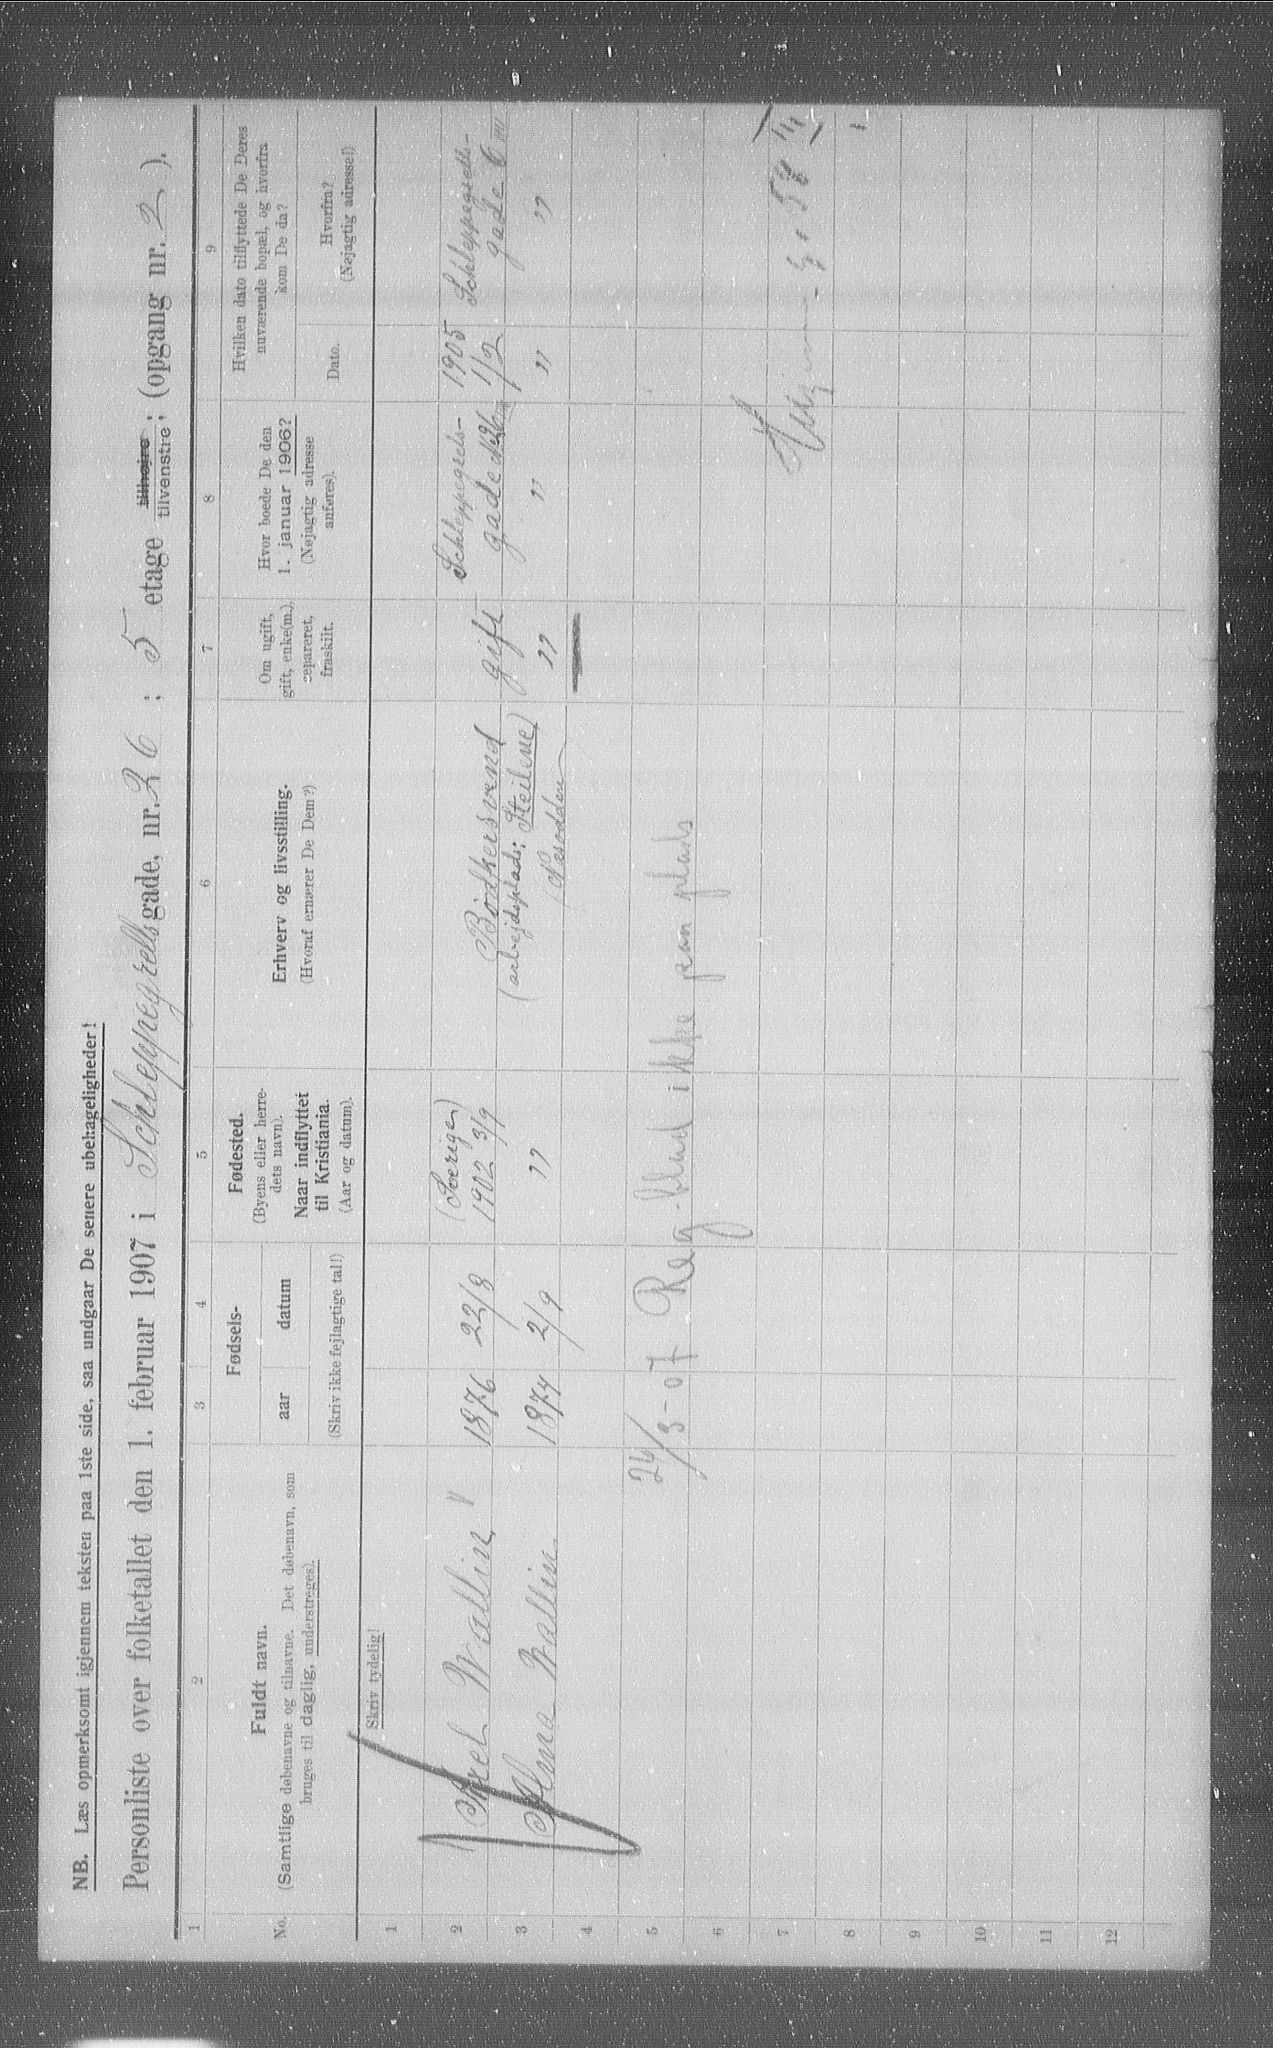 NB. Læs opmerksomt igjennem teksten paa 1ste side, saa undgaar De senere ubehageligheder!
Personliste over folketallet den 1. februar 1907 i Schleppegrellsgade, nr. 26 ; 5 etage tilhøire tilvenstre ; (opgang nr. 2 ).
1 2 3 4 5 6 7 8 9
No.
Fuldt navn.
(Samtlige døbenavne og tilnavne. Det døbenavn, som
bruges til daglig, understreges).
Fødsels-
aar datum
(Skriv ikke fejlagtige tal!)
Fødested.
(Byens eller herre-
dets navn).
Naar indflyttet
til Kristiania.
(Aar og datum).
Erhverv og livsstilling.
(Hvoraf ernærer De Dem?)
Om ugift,
gift, enke(m.),
separeret,
fraskilt.
Hvor boede De den
1. januar 1906?
(Nøjagtig adresse
anføres).
Hvilken dato tilflyttede De Deres
nuværende bopæl, og hvorfra
kom De da?
Dato.
Hvorfra?
(Nøjagtig adresse!)
Skriv tydelig!
1
2 Axel Wallin 1876 22/8 (Sverige) 1902 3/9 Bødkersvend gift Schleppegrels-gade 26 1905 1/2 Schleppegrells-gade 6
(arbejdsplads: Steilene)
3 Alma Wallin 1874 2/9 " " " " "
(Næsodden)
4
5 26/3-07 Reg.blad ikke paa plads
6
7
8
9
10
11
12